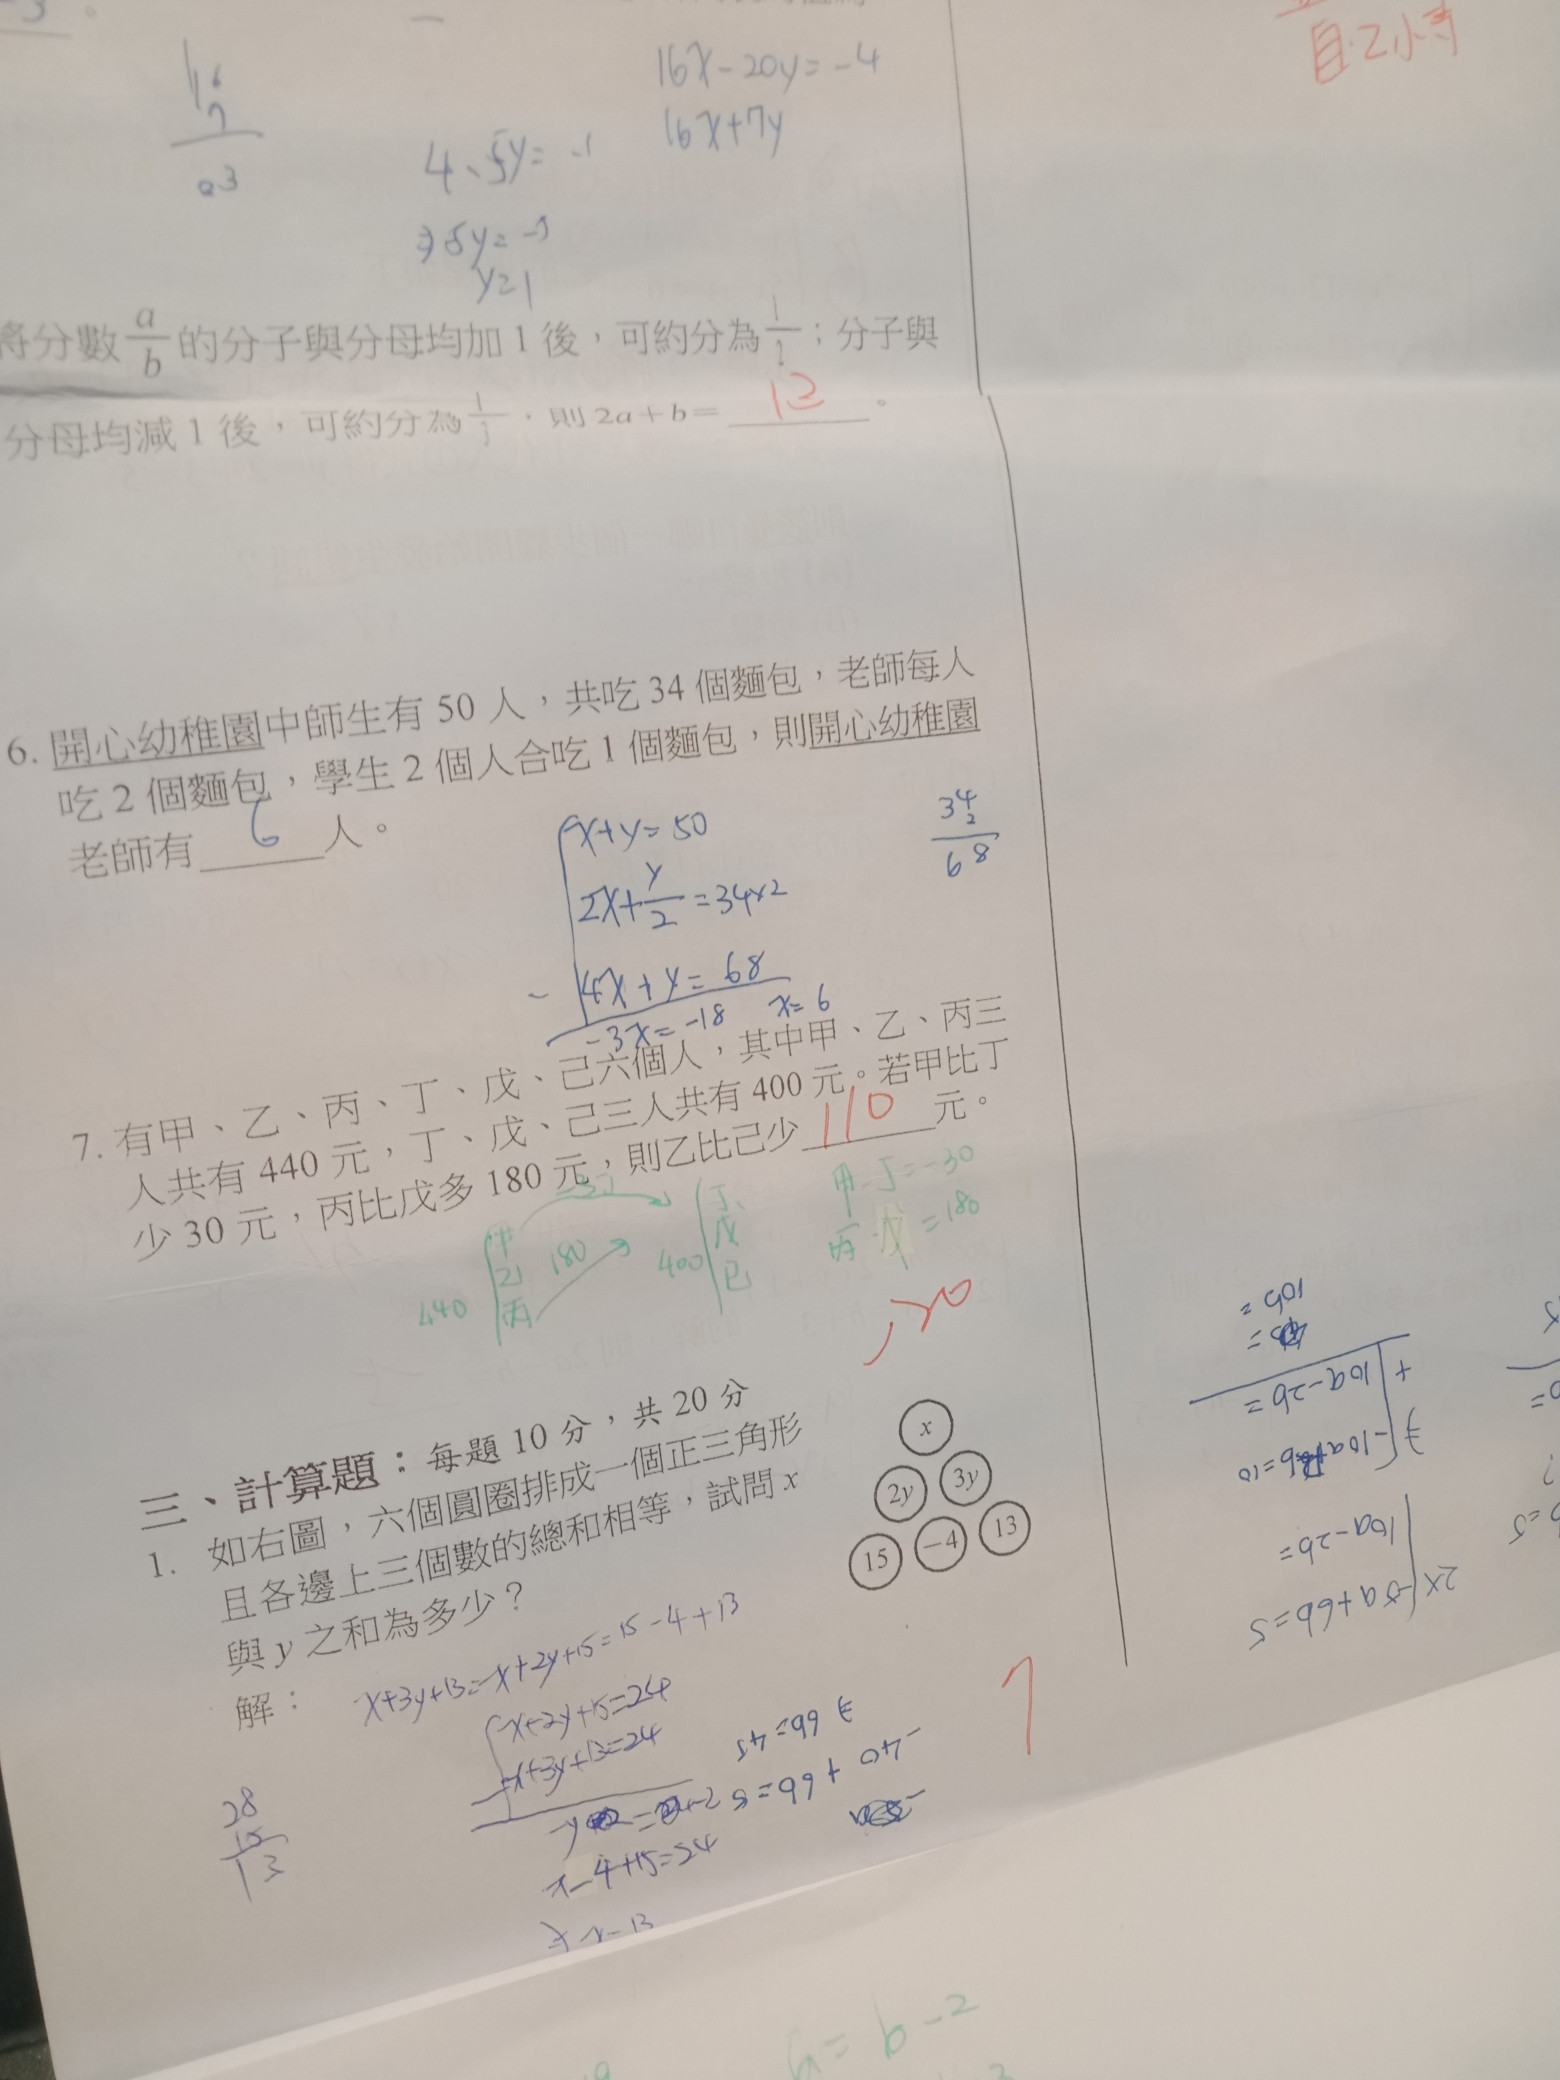 自乙小寺
16x-20y=-4
16x+7y
y=1
將分數 a/b 的分子與分母均加 1 後，可約分為 1/2；分子與
分母均減 1 後，可約分為 1/3，則 2a+b= 12 。
6. 開心幼稚園中師生有 50 人，共吃 34 個麵包，老師每人
吃 2 個麵包，學生 2 個人合吃 1 個麵包，則開心幼稚園
老師有 6 人。
x+y=50
2x+y/2=34x2
4x+y=68
-3x=-18 x=6
34
2
68
7. 有甲、乙、丙、丁、戊、己六個人，其中甲、乙、丙三
人共有 440 元，丁、戊、己三人共有 400 元。若甲比丁
少 30 元，丙比戊多 180 元，則乙比己少 110 元。
甲-丁=-30
丙-戊=180
440
甲
乙
丙
180
400
丁
戊
己
三、計算題：每題 10 分，共 20 分
1. 如右圖，六個圓圈排成一個正三角形
且各邊上三個數的總和相等，試問 x
與 y 之和為多少？
解：
x
2y 3y
15 -4 13
x+3y+13=x+2y+15=15-4+13
x+2y+15=24
x+3y+13=24
x-4+15=24
28
15
13
-40+6b=5
⇒6b=45
2x -5a+6b=5
10a-2b=
+ 10a-2b=
10b=
a=b-2